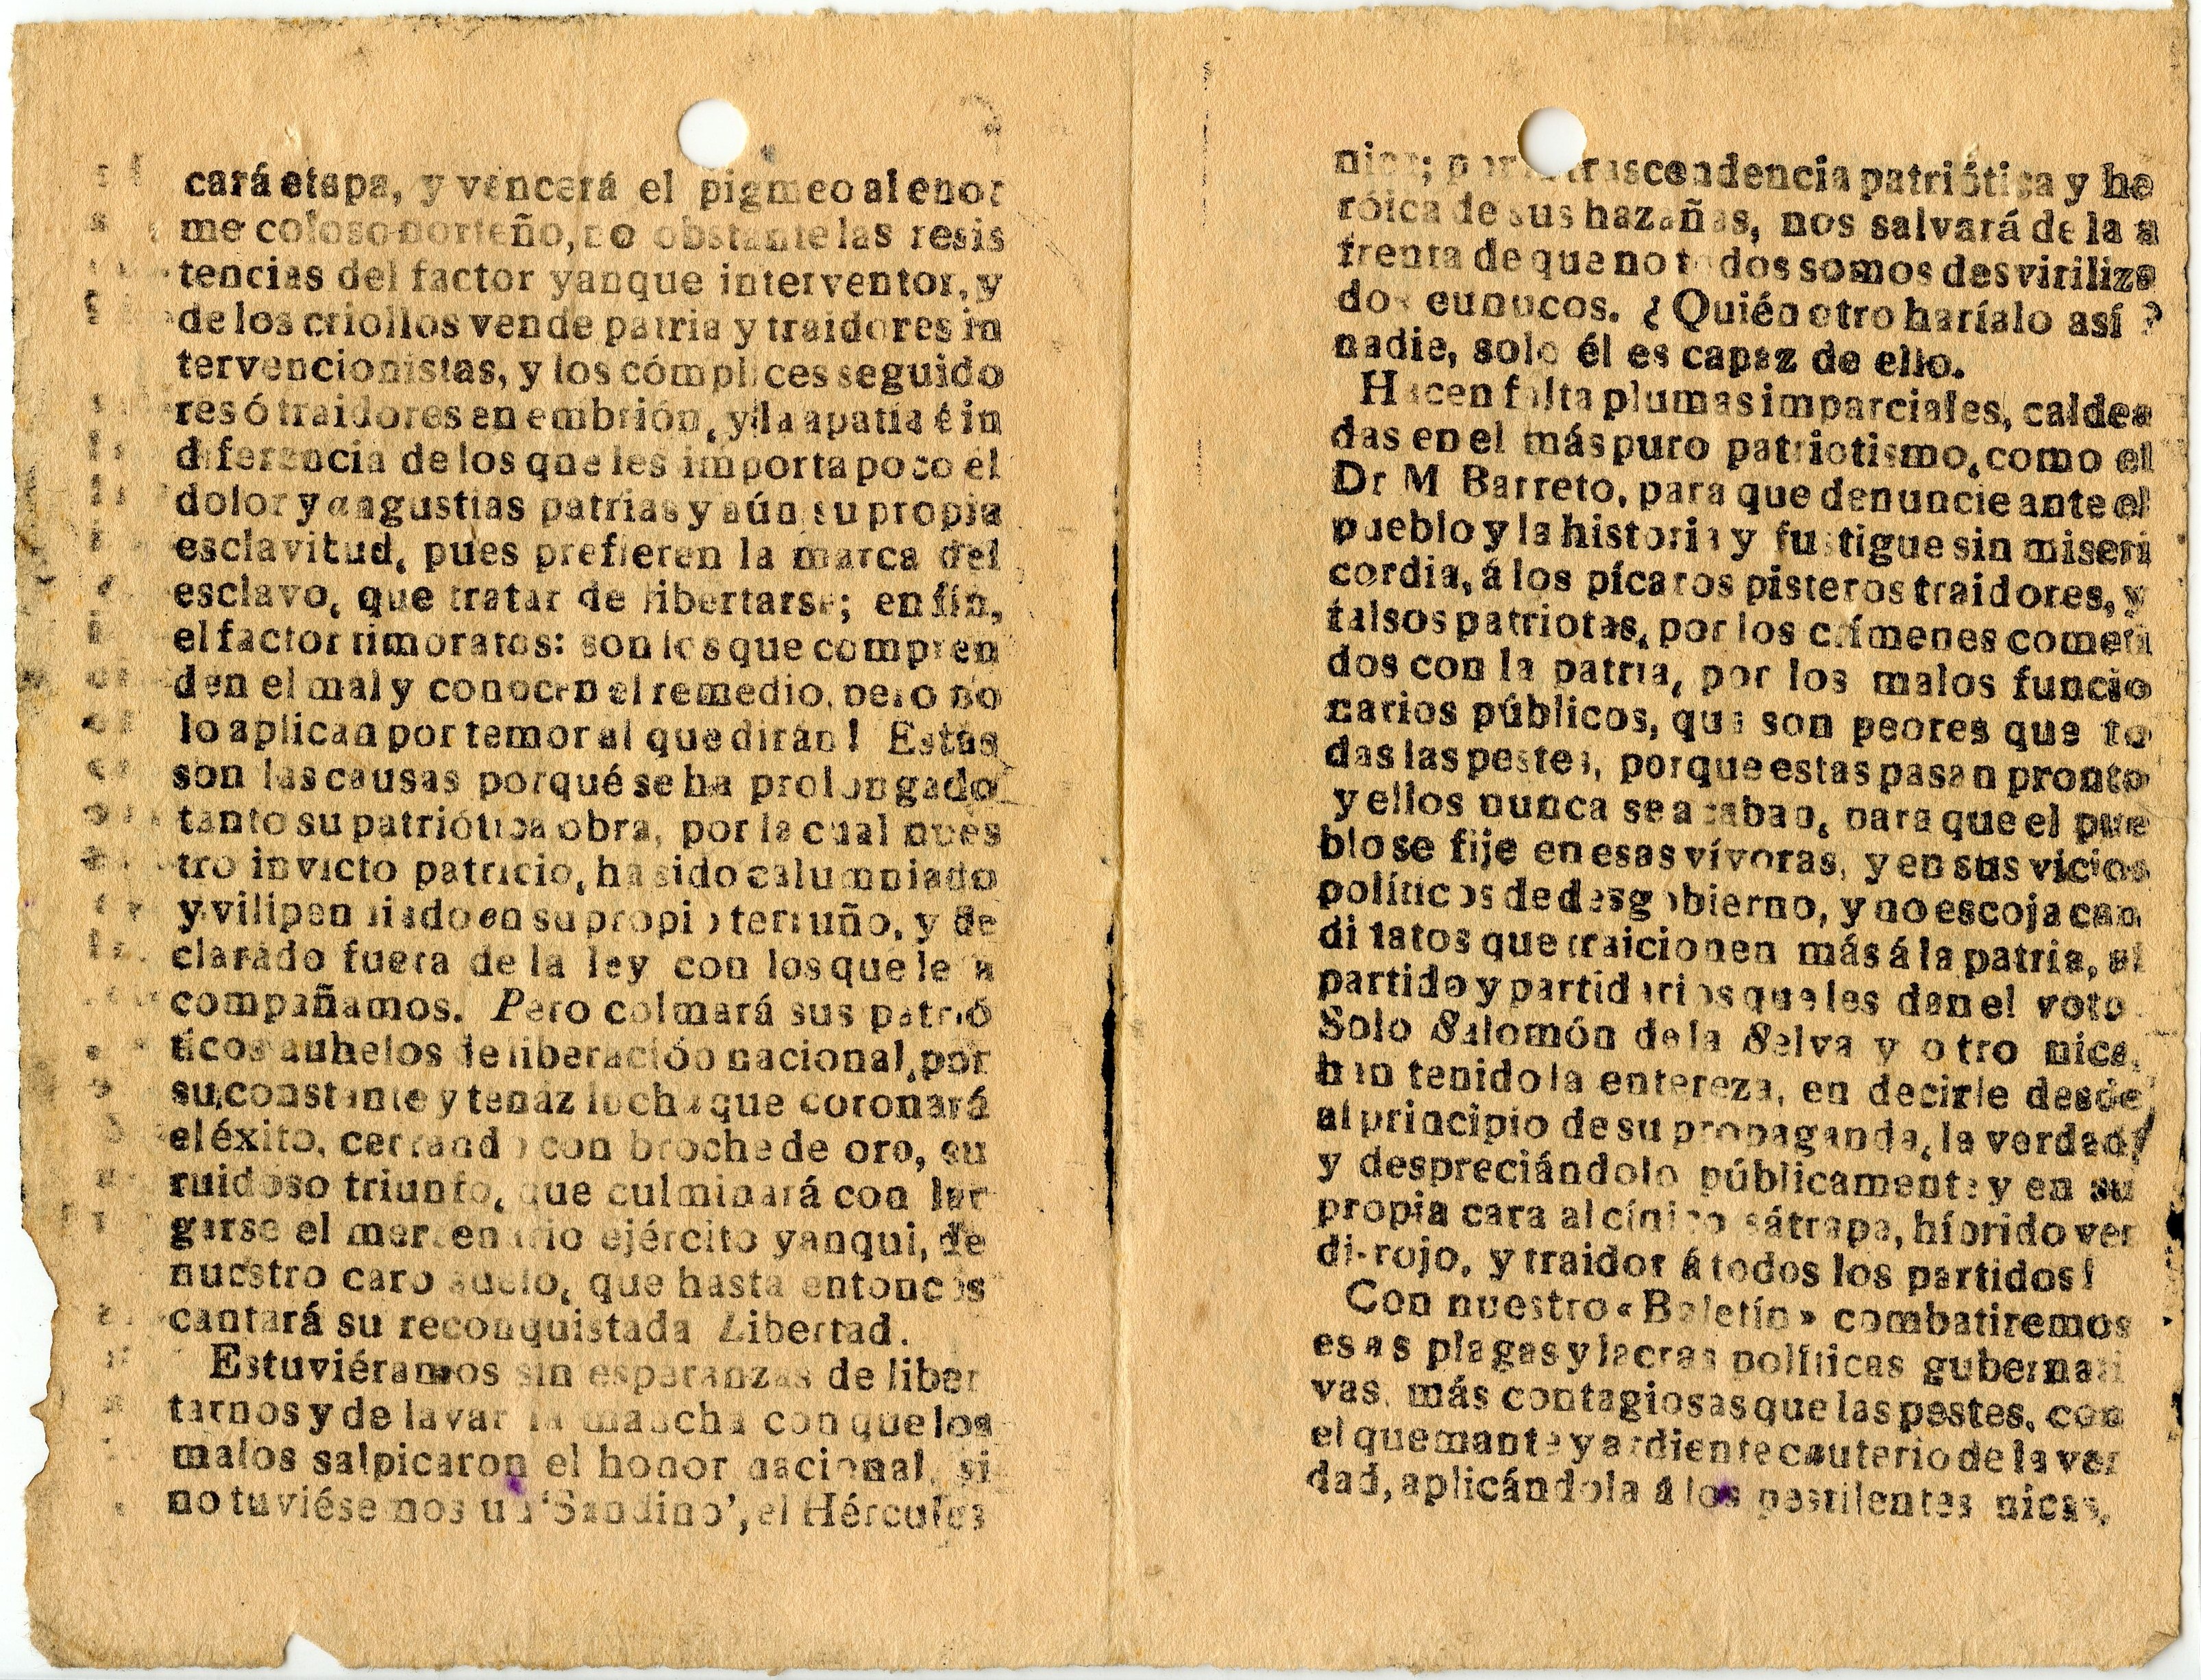 cará etapa, y vencerá el pigmeo al enor
me coloso norteño, no obstante las resis
tencias del factor yanque interventor, y
de los criollos vende patria y traidores in
tervencionistas, y los cómplices seguido
res ó traidores en embrión, y la apatía é in
diferencia de los que les importa poco el
dolor y angustias patrias y aún su propia
esclavitud, pues prefieren la marca del
esclavo, que tratar de libertarse; en fín,
el factor timoratos: son los que compren
den el mal y conocen el remedio, pero no
lo aplican por temor al que dirán! Estas
son las causas porqué se ha prolongado
tanto su patriótica obra, por la cual nues
tro invicto patricio, ha sido calumniado
y vilipendiado en su propio terruño, y de
clarado fuera de la ley con los que le a
compañamos. Pero colmará sus patrió
ticos auhelos de liberación nacional, por
su constante y tenáz lucha que coronará
el éxito, cerrando con broche de oro, su
ruidoso triunfo, que culminará con lar
garse el mercenario ejército yanqui, de
nuestro caro suelo, que hasta entonces
cantará su reconquistada Libertad.
Estuviéramos sin esperanzas de liber
tarnos y de lavar la mancha con que los
malos salpicaron el honor nacional, si
no tuviésemos un 'Sandino', el Hércules
nica; por trascendencia patriótica y he
róica de sus hazañas, nos salvará de la a
frenta de que no todos somos desviriliza
dos eunucos. ¿Quién otro haríalo así?
nadie, solo él es capaz de ello.
Hacen falta plumas imparciales, caldea
das en el más puro patriotismo, como el
Dr M Barreto, para que denuncie ante el
pueblo y la historia y fustigue sin miseri
cordia, á los pícaros pisteros traidores, y
falsos patriotas, por los crímenes cometi
dos con la patria, por los malos funcio
narios públicos, que son peores que to
das las pestes, porque estas pasan pronto
y ellos nunca se acaban, para que el pue
blo se fije en esas vívoras, y en sus vicios
políticos de desgobierno, y no escoja can
didatos que traicionen más á la patria, al
partido y partidarios que les dan el voto.
Solo Salomón de la Selva y otro nica,
han tenido la entereza, en decirle desde
al principio de su propaganda, la verdad,
y despreciándolo públicamente y en su
propia cara al cínico sátrapa, híbrido ver
di-rojo, y traidor á todos los partidos!
Con nuestro «Boletín» combatiremos
esas plagas y lacras políticas gubernati
vas, más contagiosas que las pestes, con
el quemante y ardiente cauterio de la ver
dad, aplicándola á los pestilentes nicas.